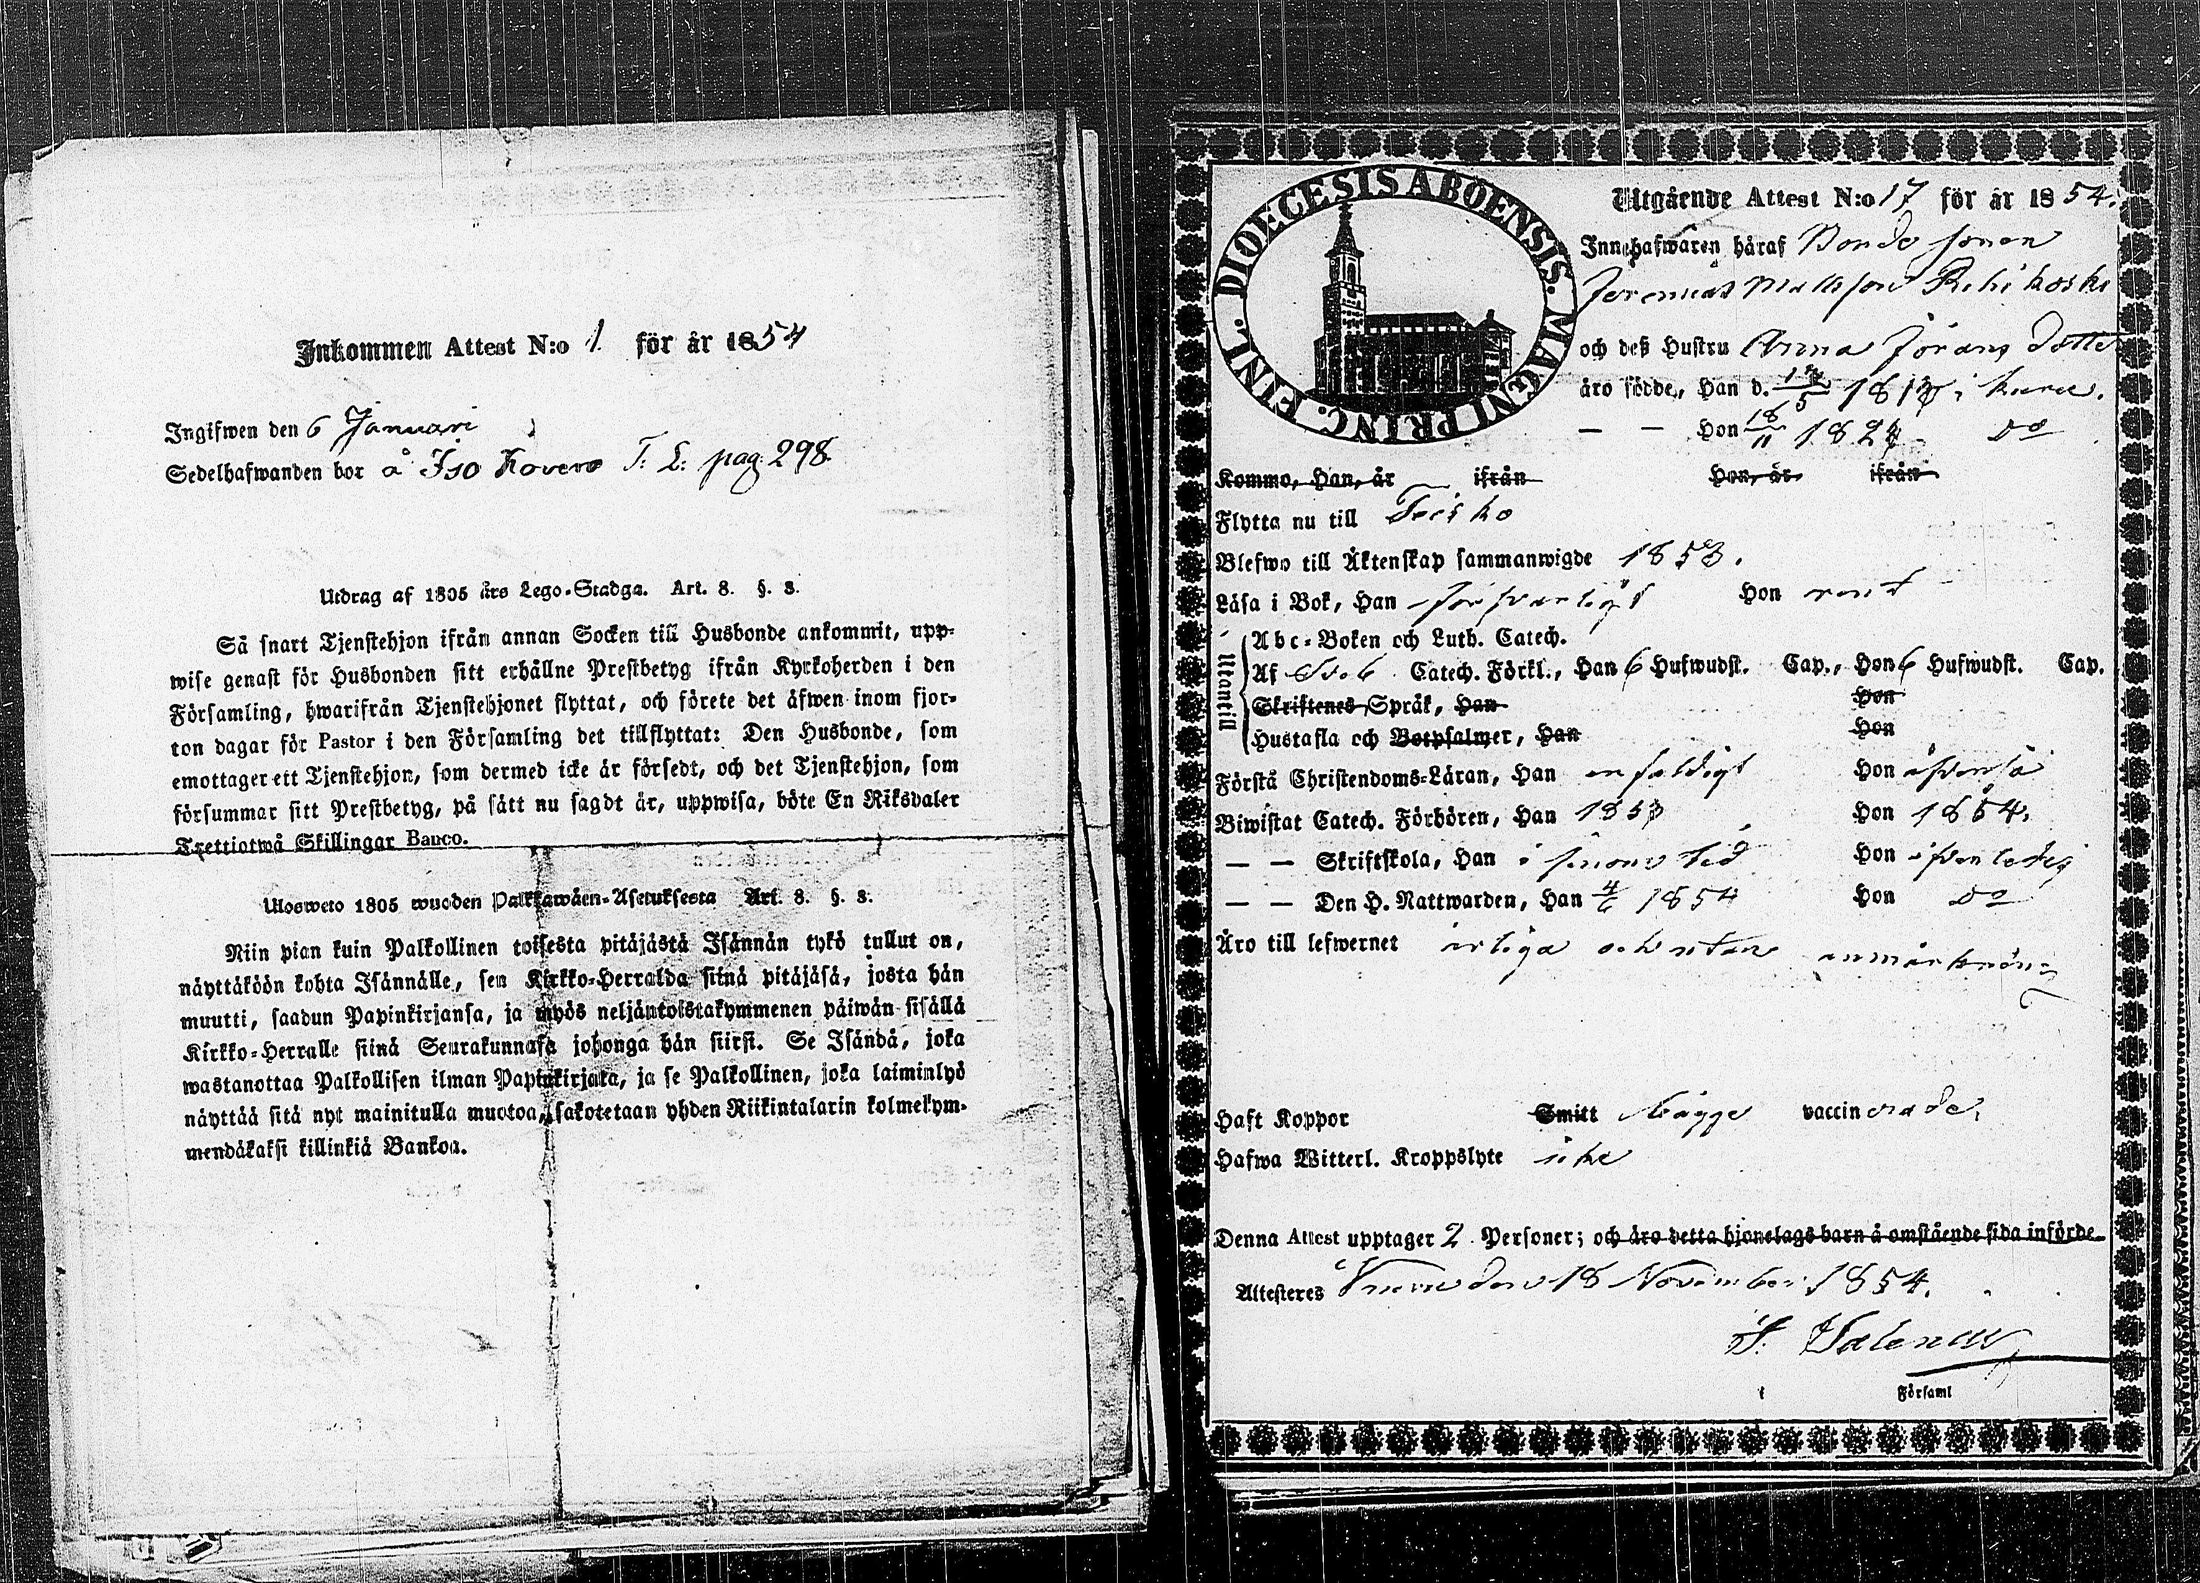 Inkommen Attest N:o 1 för år 1854
Ingifwen den 6 Januari
Sedelhafwanden bor å Iso Kovero T: L: pag 298
Utdrag af 1805 års Lego-Stadga. Art. 8. §. 8.
Så snart Tjenstehjon ifrån annan Socken till Husbonde ankommit, upp-
wise genast för Husbonden sitt erhållne Prestbetyg ifrån Kyrkoherden i den
Församling, hwarifrån Tjenstehjonet flyttat, och förete det äfwen inom fjor-
ton dagar för Pastor i den Församling det tillflyttat: Den Husbonde, som
emottager ett Tjenstehjon, som dermed icke är försedt, och det Tjenstehjon, som
försummar sitt Prestbetyg, på sätt nu sagdt är, uppwisa, böte En Riksdaler
Trettiotwå Skillingar Banco.
Ulosweto 1805 wuoden Palkkawäen-Asetuksesta Art. 8. §. 8.
Niin pian kuin Palkollinen toisesta pitäjästä Isännän tykö tullut on,
näyttäköön kohta Isännälle, sen Kirkko-Herralda siinä pitäjäsä, josta hän
muutti, saadun Papinkirjansa, ja myös neljäntoistakymmenen päiwän sisällä
Kirkko-Herralle siinä Seurakunnasa johonga hän siirsi. Se Isändä, joka
wastanottaa Palkollisen ilman Papinkirjata, ja se Palkollinen, joka laiminlyö
näyttää sitä nyt mainitulla muotoa, sakotetaan yhden Riikintalarin kolmekym-
mendäkaksi killinkiä Bankoa.
DIOECESIS ABOENSIS. MAGNI PRINC. FINL.
Utgående Attest N:o 17 för år 1854.
Innehafwaren häraf Bonde sonen
Jeremias Mattsson Rihikoski
och deß Hustru Anna Jörans dotter
äro födde, Han d. 1818 i Kuru.
— — Hon 18/11 1824 do
Kommo, Han, år ifrån Hon, år ifrån
Flytta nu till Teisko
Blefwo till Äktenskap sammanwigde 1853.
Läsa i Bok, Han försvarligt Hon rent
Utantill
Abc-Boken och Luth. Catech.
Af Sveb. Catech. Förkl., Han 6 Hufwudst. Cap., Hon 6 Hufwudst. Cap.
Skriftenes Språk, Han Hon
Hustafla och Botpsalmer, Han Hon
Förstå Christendoms-Läran, Han enfaldigt Hon äfvenså
Biwistat Catech. Förhören, Han 1853 Hon 1854.
— — Skriftskola, Han i sinom tid Hon äfven ledig
— — Den H. Nattwarden, Han 4/6 1854 Hon do
Äro till lefwernet ärliga och utan anmärkning
Haft Koppor Smitt bägge vaccinerade.
Hafwa Witterl. Kroppslyte icke
Denna Attest upptager 2 Personer; och äro detta hjonelags barn å omstående sida införde
Attesteres Kuru den 18 November 1854.
Församl